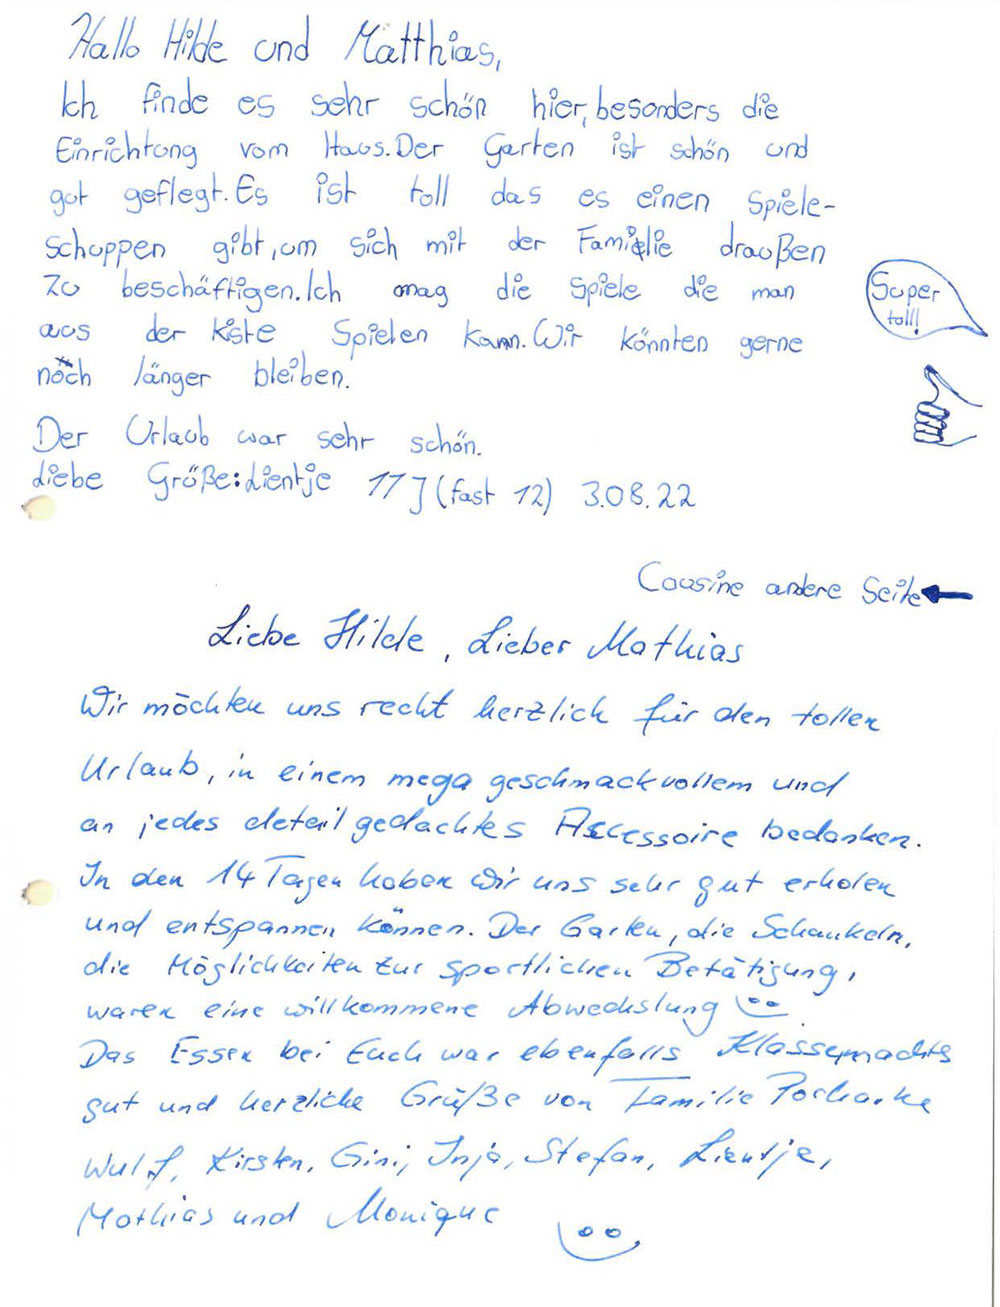 Hallo Hilde und Matthias,
Ich finde es sehr schön hier, besonders die
Einrichtung vom Haus. Der Garten ist schön und
gut geflegt. Es ist toll das es einen Spiele-
schuppen gibt, um sich mit der Familie draußen
zu beschäftigen. Ich mag die Spiele die man
aus der Kiste Spielen kann. Wir könnten gerne
noch länger bleiben.
Super
toll!
Der Urlaub war sehr schön.
Liebe Grüße: Lientje 11 J (fast 12) 3.08.22
Cousine andere Seite
Liebe Hilde, Lieber Mathias
Wir möchten uns recht herzlich für den tollen
Urlaub, in einem mega geschmackvollem und
an jedes deteil gedachtes Accessoire bedanken.
In den 14 Tagen haben wir uns sehr gut erholen
und entspannen können. Der Garten, die Schaukeln,
die Möglichkeiten zur sportlichen Betätigung,
waren eine willkommene Abwechslung
Das Essen bei Euch war ebenfalls Klasse, machts
gut und herzliche Grüße von Familie
Wulf, Kirsten, Gini, Inja, Stefan, Lientje,
Mathias und Monique